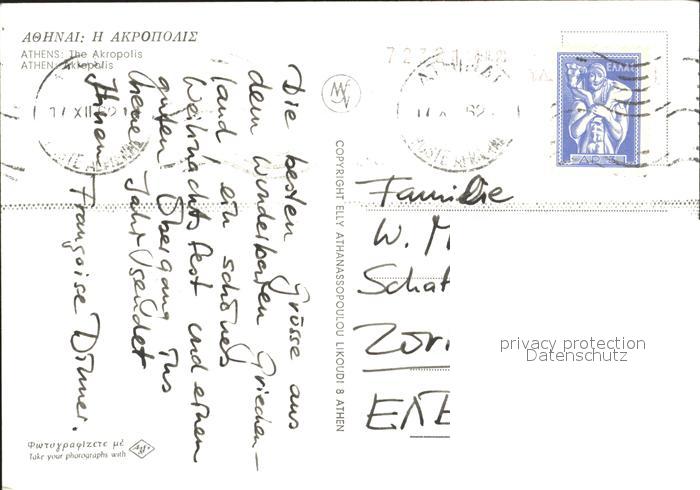 ΑΘΗΝΑΙ: Η ΑΚΡΟΠΟΛΙΣ
ATHENS: The Akropolis
ATHEN: Akropolis
Die besten Grüsse aus
dem wunderbaren Griechen-
land ein schönes
Weihnachtsfest und einen
guten Übergang ins
neue Jahr sendet
Ihnen Françoise
Φωτογραφίζετε μέ
Take your photographs with
COPYRIGHT ELLY ATHANASSOPOULOU LIKOUDI 8 ATHEN
17 XII 62
ΕΛΛΑΣ
ΔΡ
Familie
W. M
Schaf
privacy protection
Datenschutz